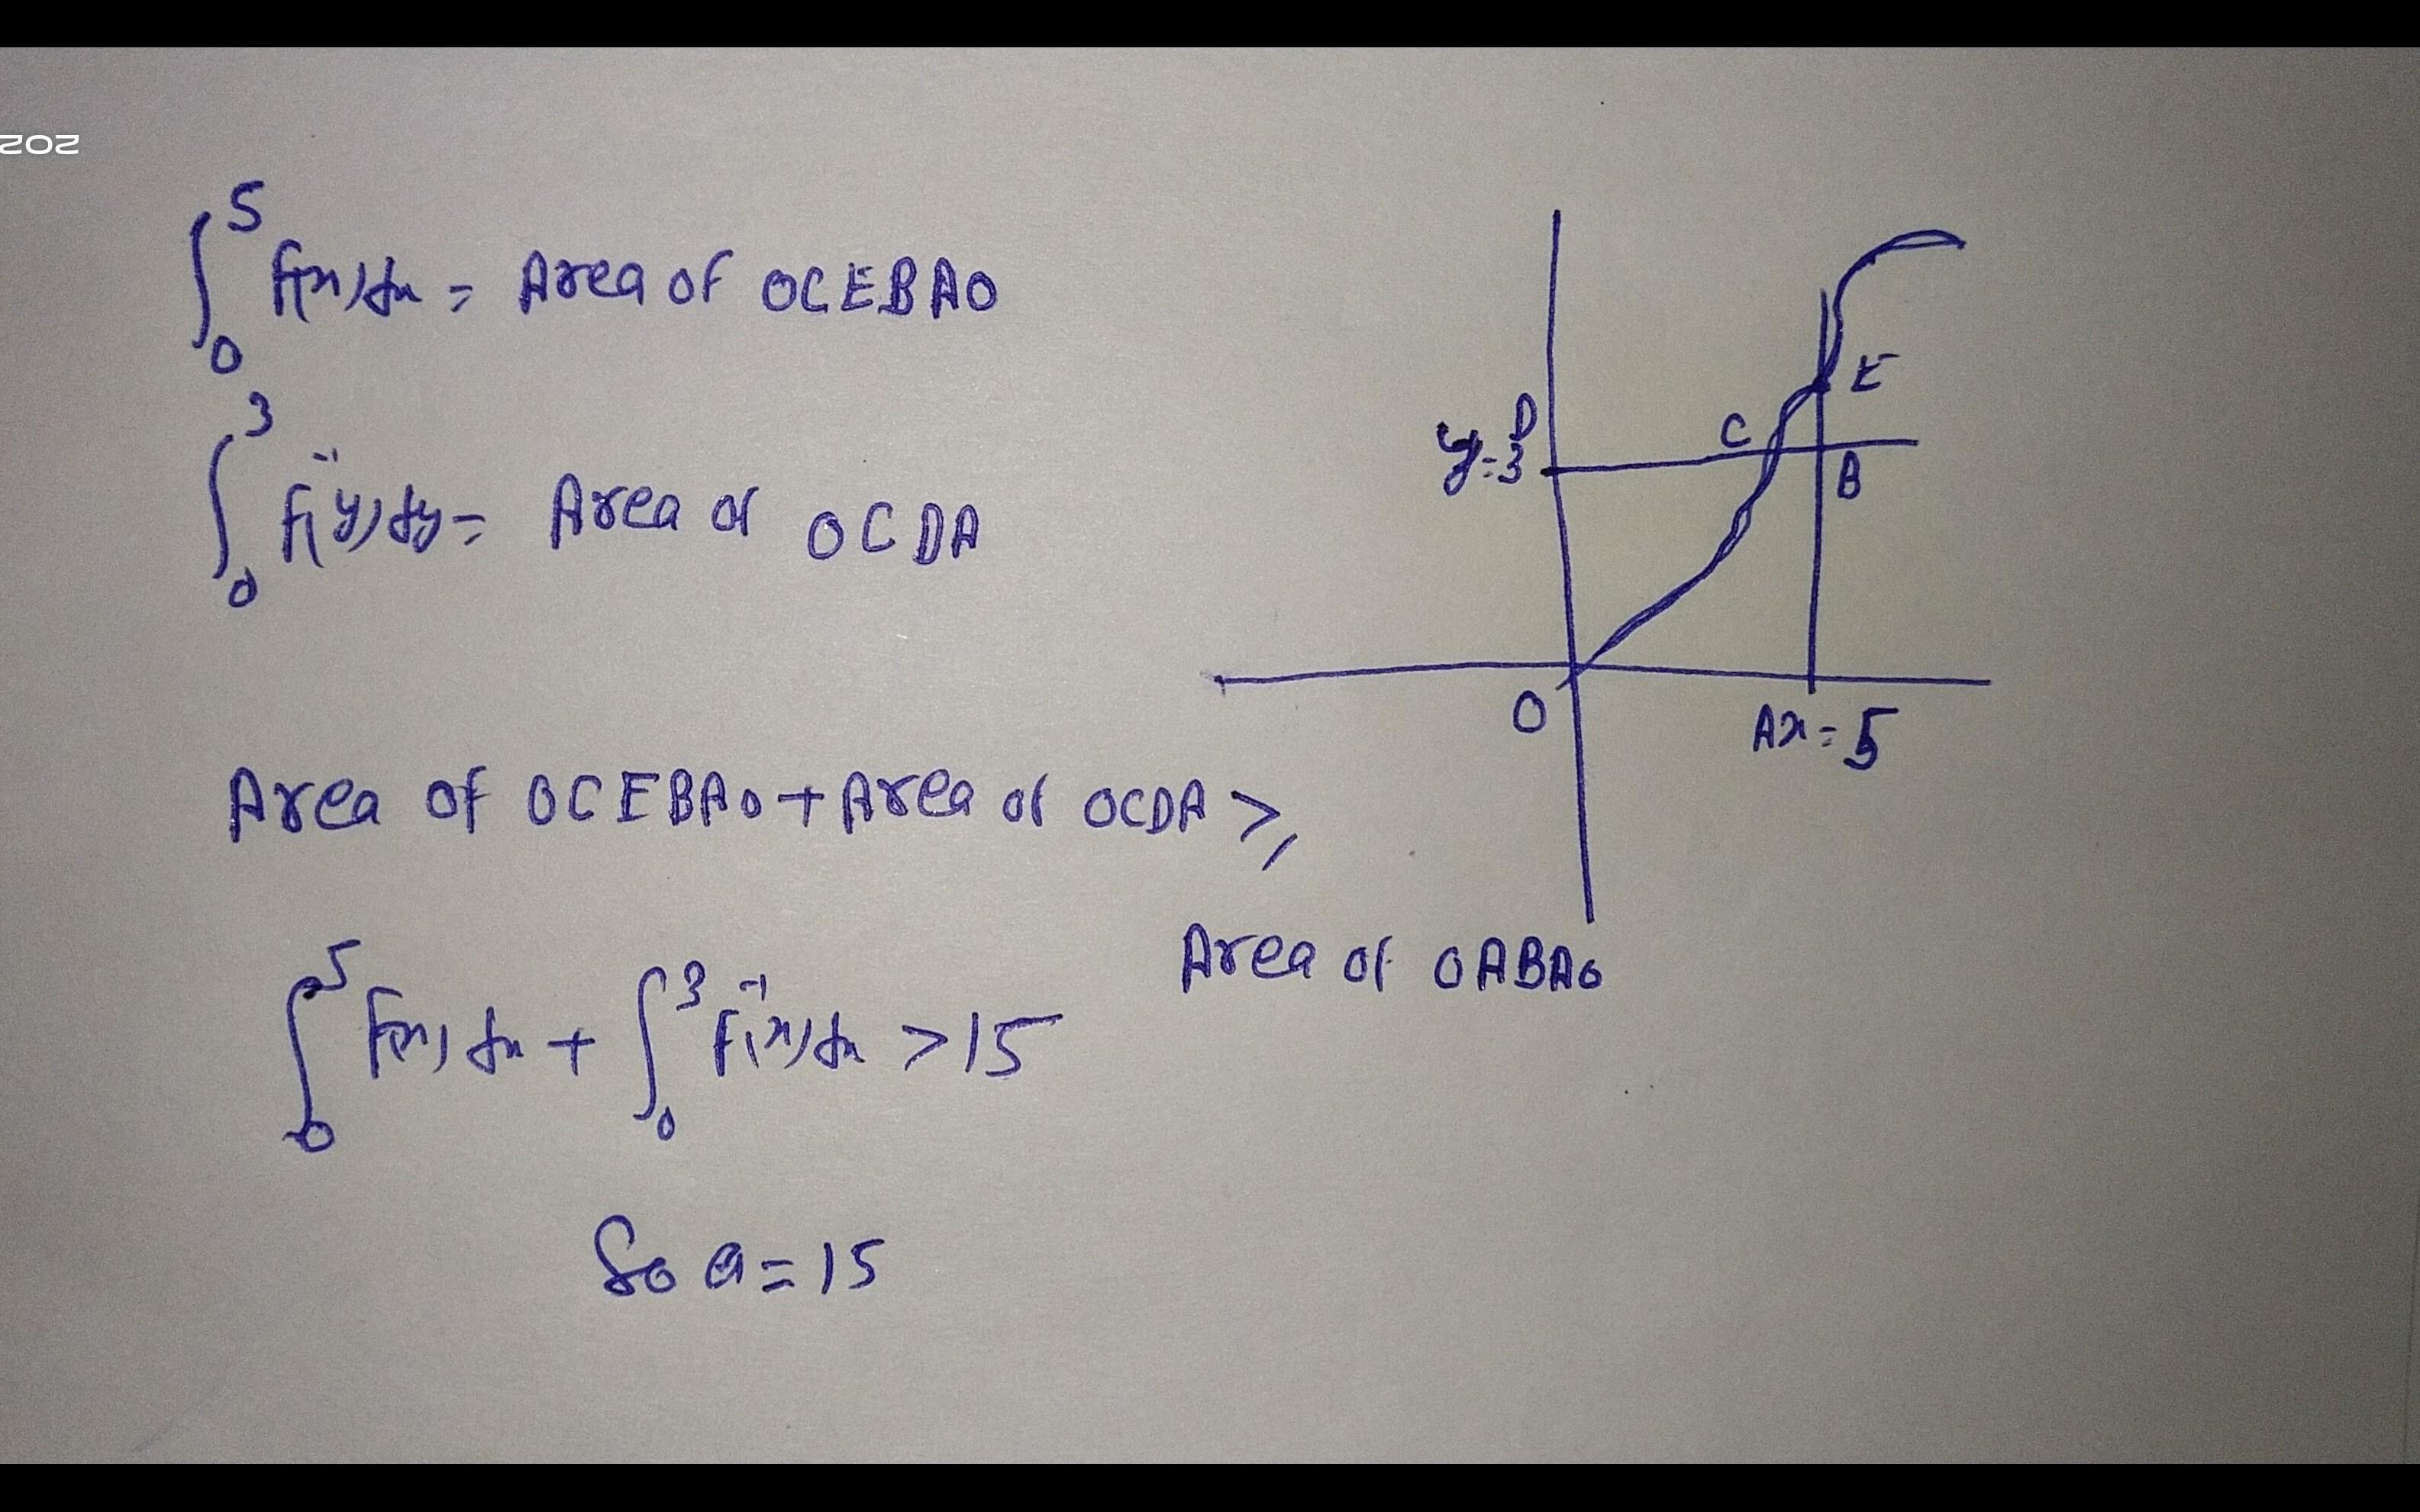 202
∫₀⁵ f(x)dx = Area of OCEBAO
∫₀³ f⁻¹(y)dy = Area of OCDA
Area of OCEBAO + Area of OCDA ≥
Area of OABAO
∫₀⁵ f(x)dx + ∫₀³ f⁻¹(x)dx > 15
So a = 15
D
y=3
C
E
B
O
A x = 5